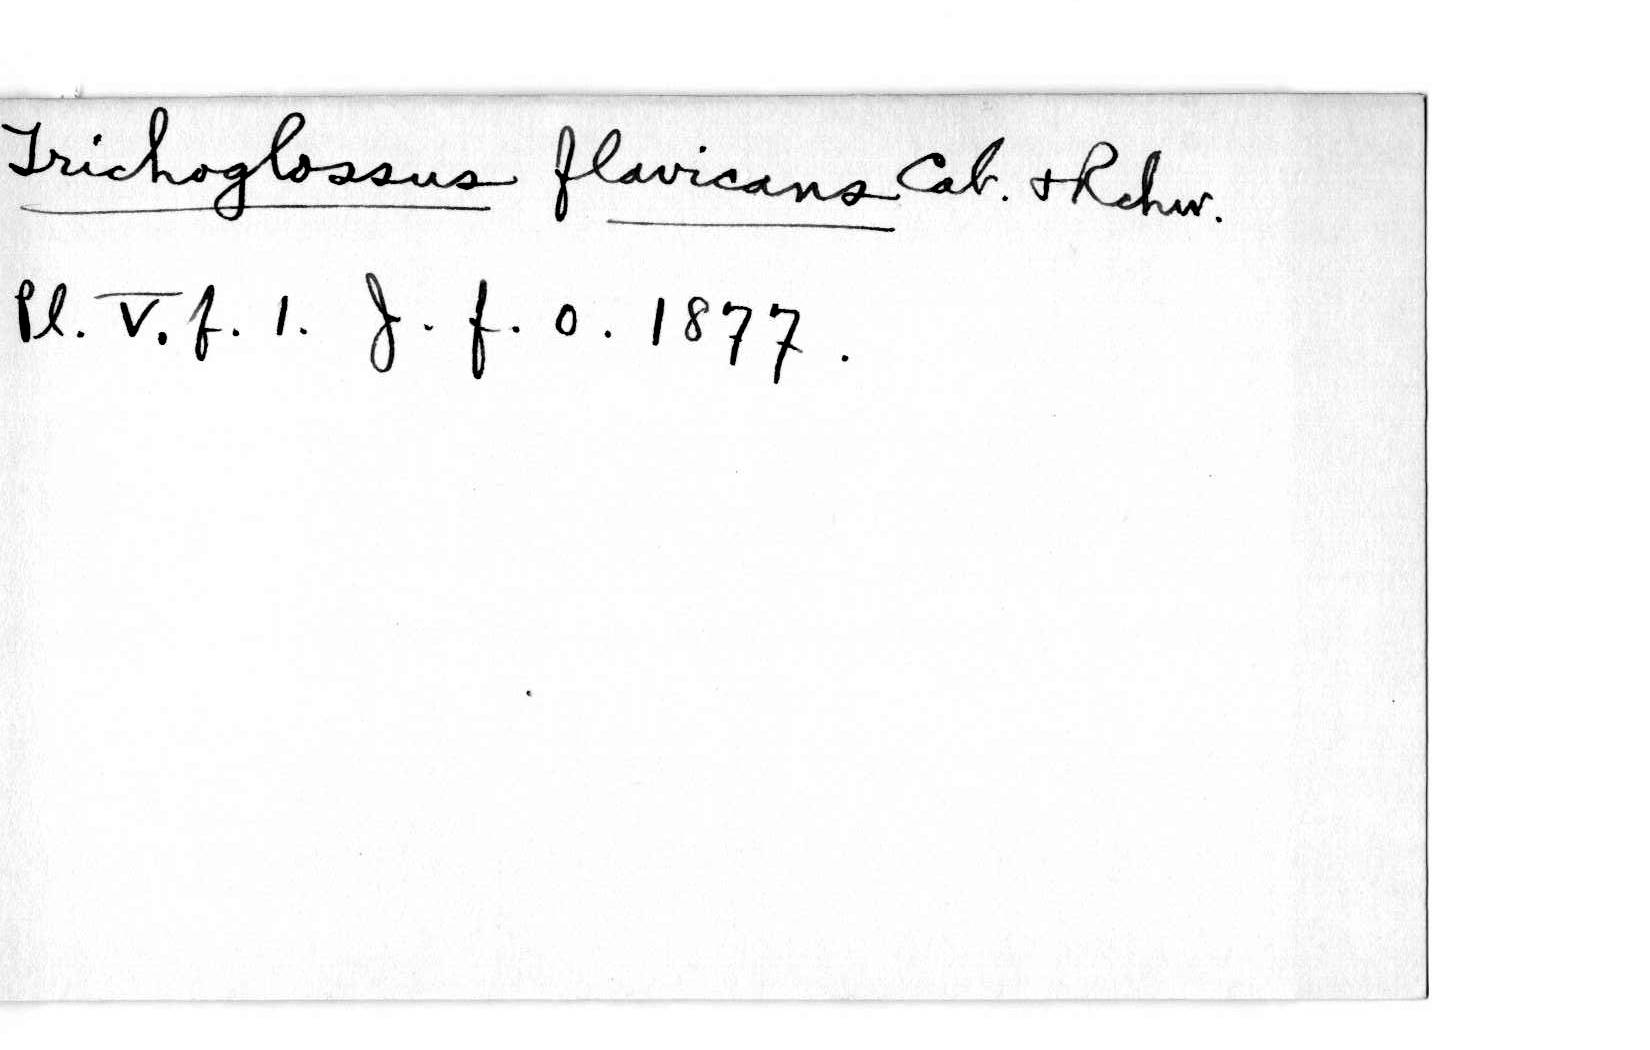 Trichoglossus flavicans Cab. & Rchw.
Pl. V. f. 1. J. f. O. 1877.